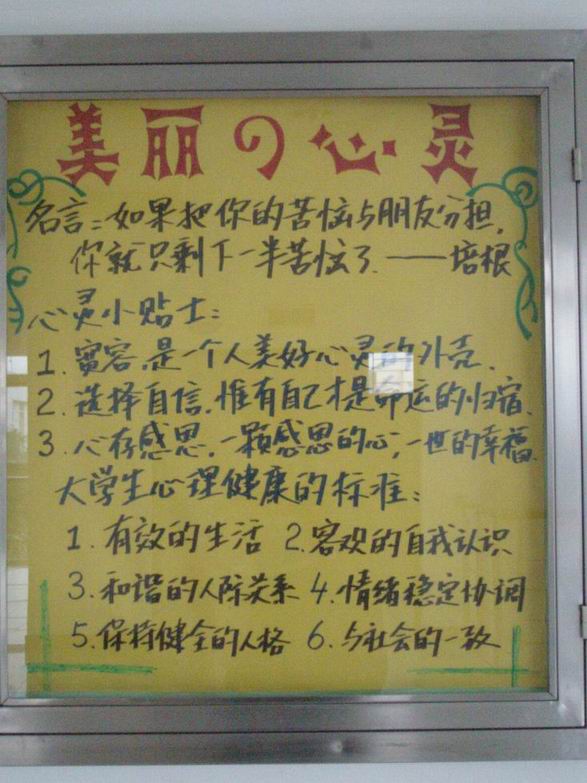 美丽の心灵
名言:如果把你的苦恼与朋友分担,
你就只剩下一半苦恼了.——培根
心灵小贴士:
1.宽容,是一个人美好心灵的外壳.
2.选择自信,惟有自己才是命运的归宿.
3.心存感恩,一颗感恩的心,一世的幸福.
大学生心理健康的标准:
1.有效的生活 2.客观的自我认识
3.和谐的人际关系 4.情绪稳定协调
5.保持健全的人格 6.与社会的一致